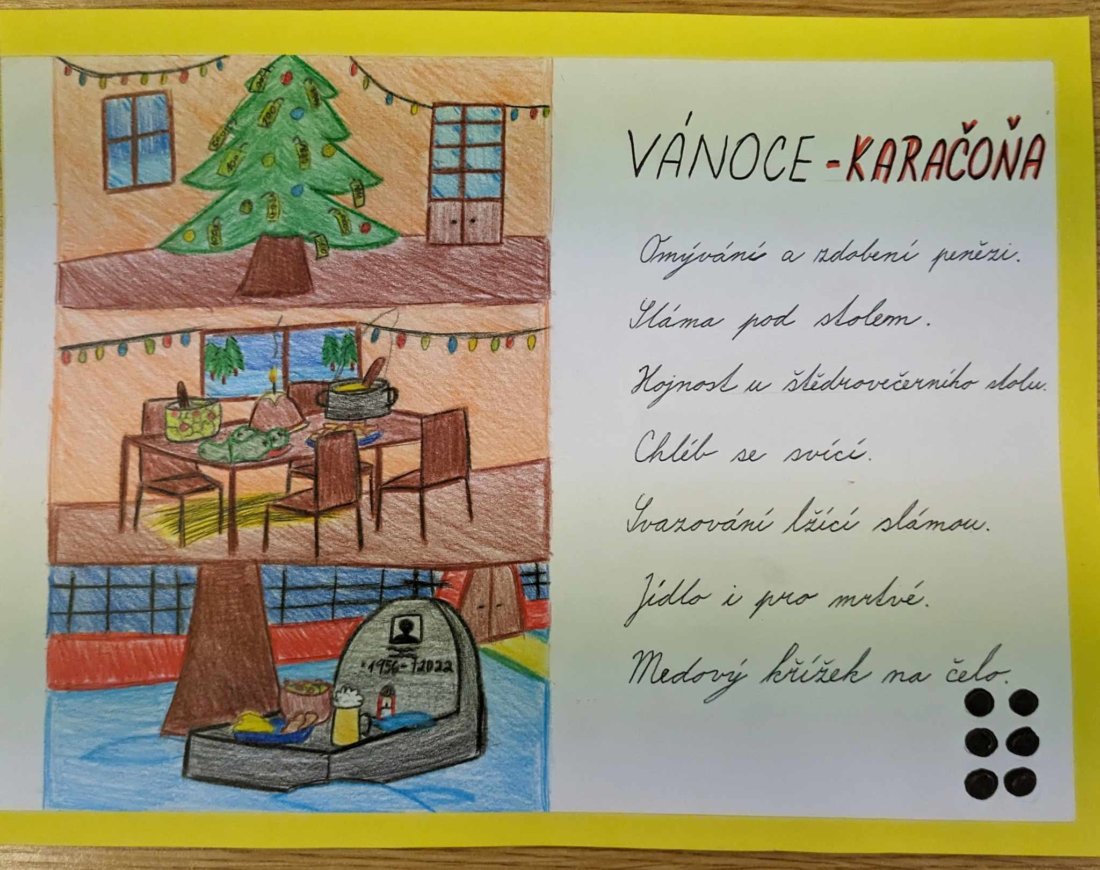 VÁNOCE - KARAČOŇA
Omývání a zdobení penězi.
Sláma pod stolem.
Hojnost u štědrovečerního stolu.
Chléb se svící.
Svazování lžící slámou.
Jídlo i pro mrtvé.
Medový křížek na čelo.
*1956-†2022